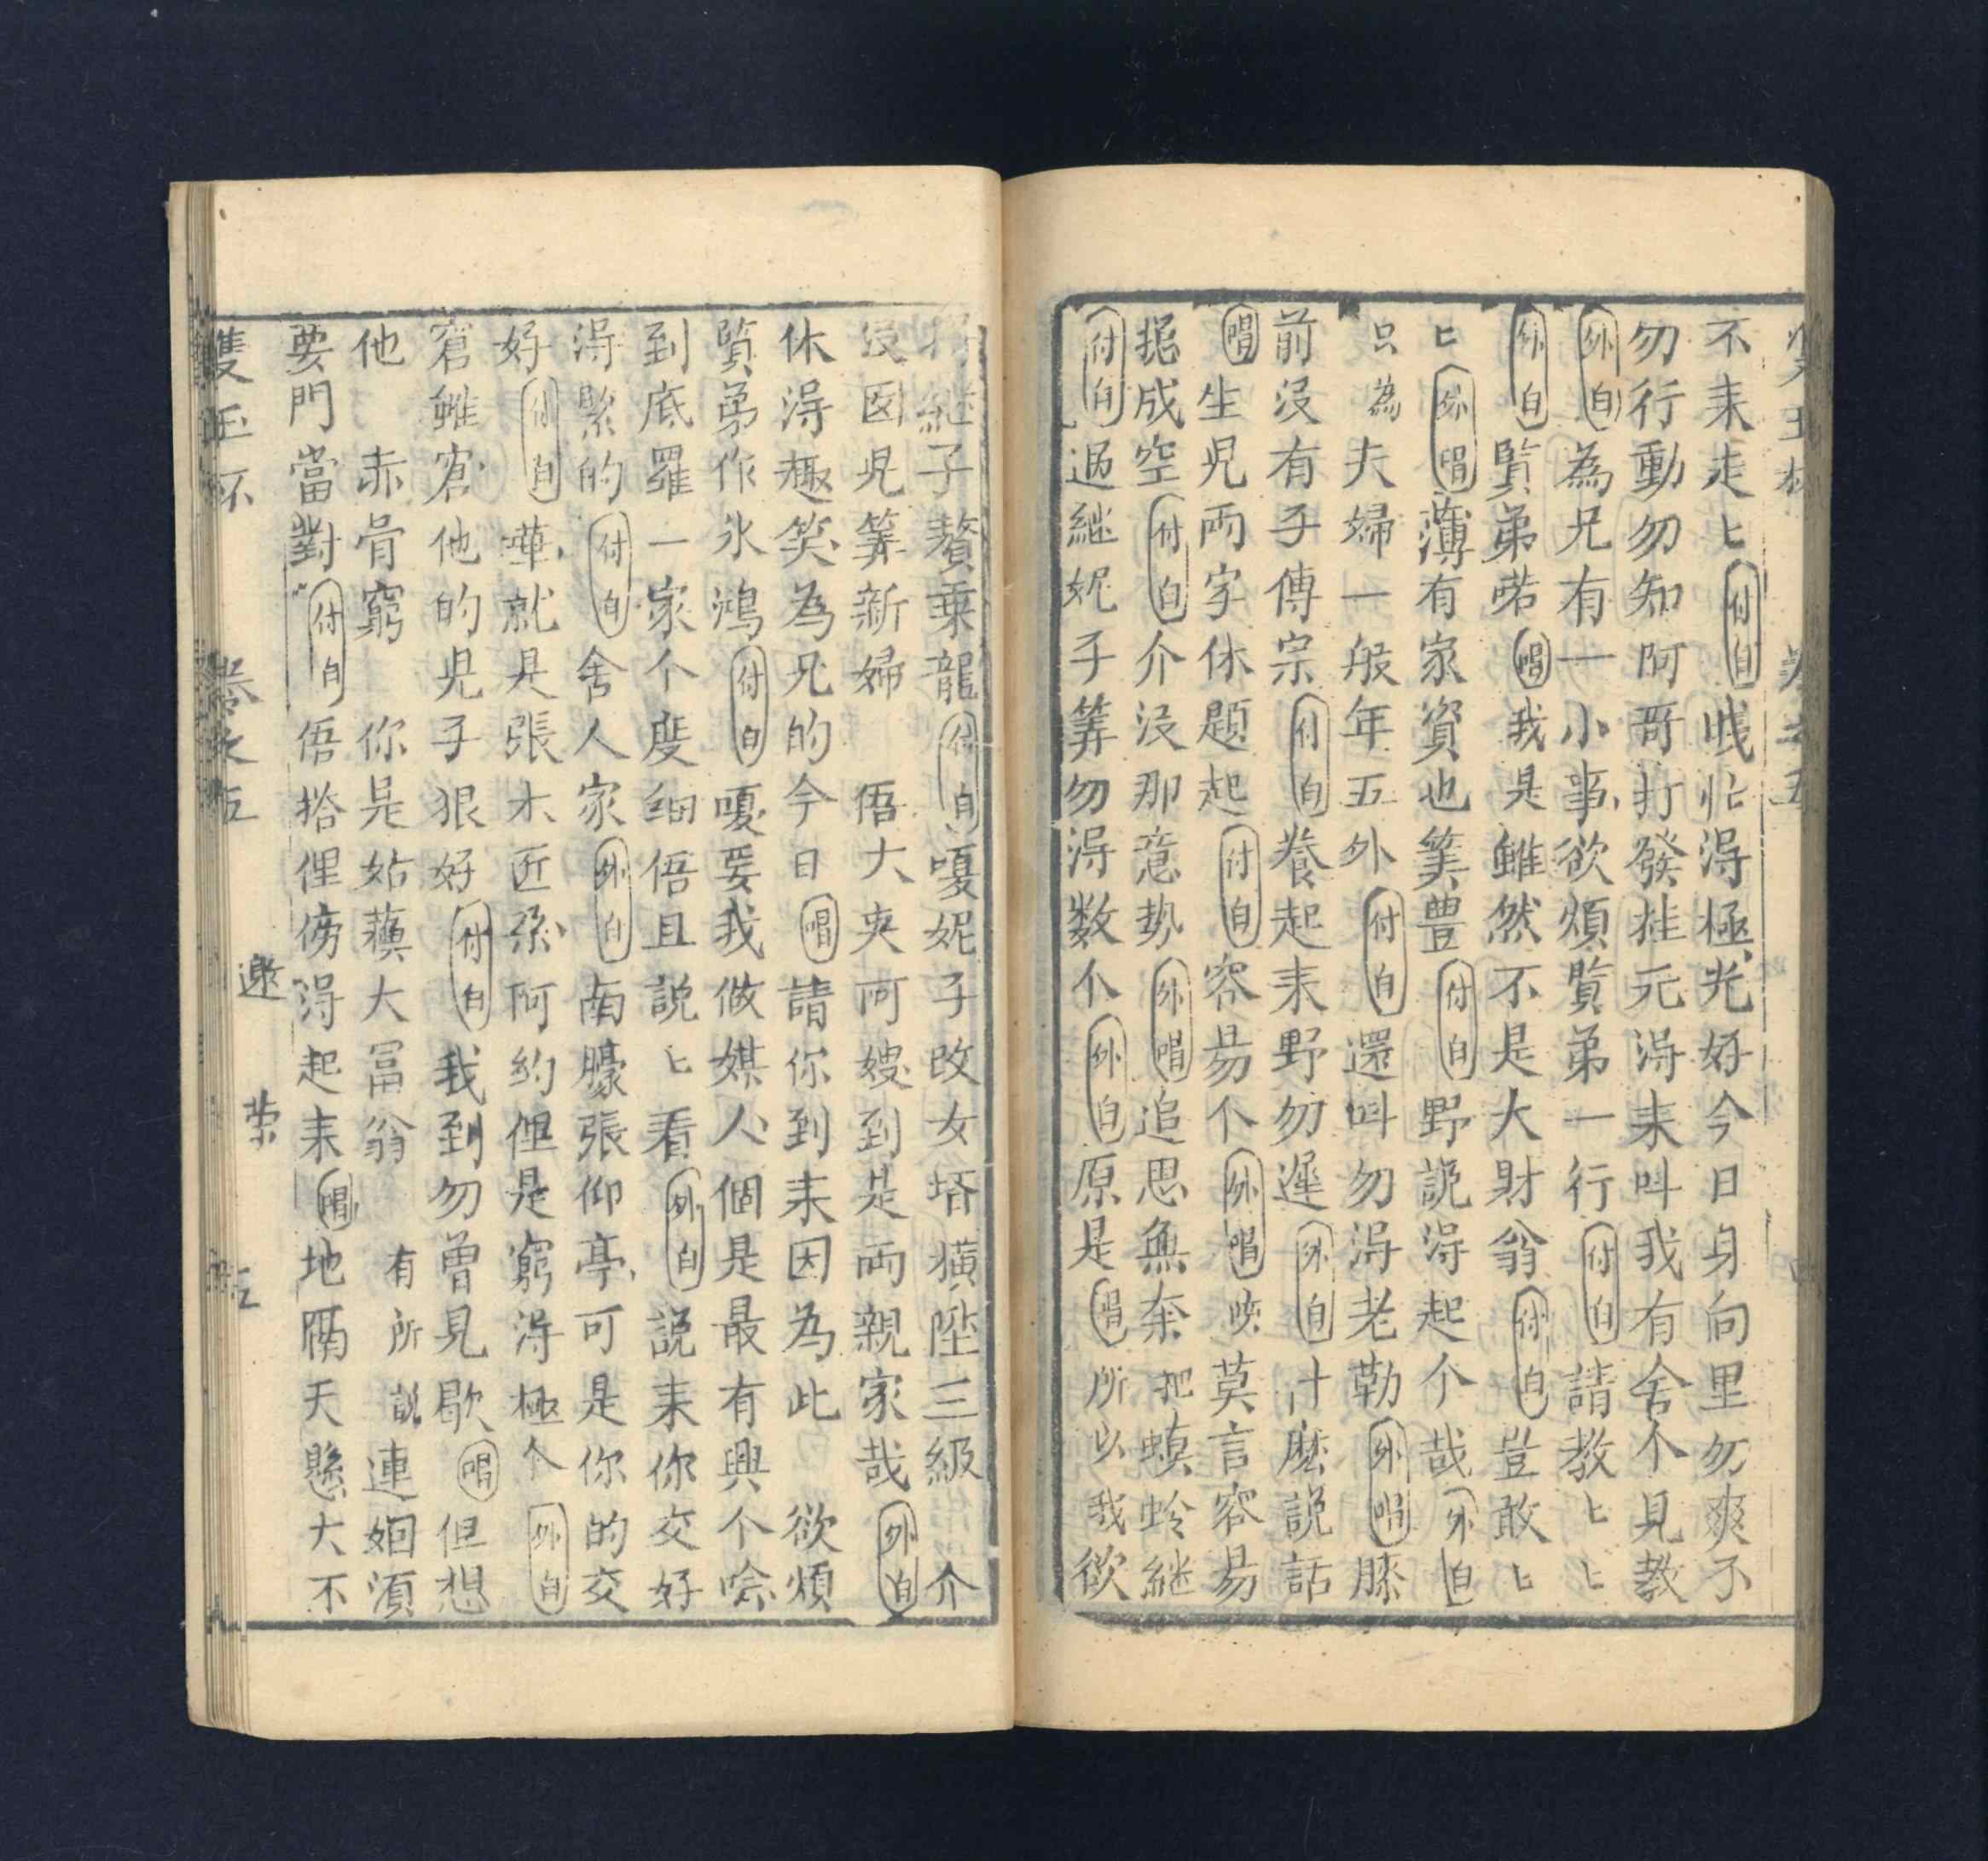 不来走匕付白賤忙得極光好今日身向里勿爽不
勿行動勿知阿哥打發挂元得来呌我有舍个見教
外白為兄有一小事欲煩賢弟一行付白請教匕匕
外白賢弟喏唱我是雖然不是大財翁付白豈敢匕
匕外唱薄有家資也筭豊付白野說得起个哉外白
只為夫婦一般年五外付白還呌勿得老勒外唱膝
前没有子傳宗付白養起来野勿遲外白什麽說話
唱生児兩字休題起付白容易个外唱唊莫言容易
掘成空付白介没那意势外唱追思無奈把螟蛉継
付白過継妮子筭勿得数个外白原是唱所以我欲
将継子贅乗龍付白嗄妮子改女壻横陞三級介
没囡児筭新婦俉大夾阿嫂到是兩親家哉外白
休得趣笑為兄的今日唱請你到来因為此欲煩
賢弟作氷鴻付白嗄要我做媒人個是最有興个唅
到底羅一家个度细俉且説匕看外白説来你交好
得緊的付白舍人家外白南濠張仰亭可是你的交
好付白嘩就是張木匠孫阿約但是窮得極个外白
窘雖窘他的児子狠好付白我到勿曾見歇唱但想
他赤骨窮你是姑蘓大冨翁有所説連姻湏
要門當對付白俉拾俚傍得起来唱地隔天懸大不
雙玉杯
卷之五
邀
荣
五